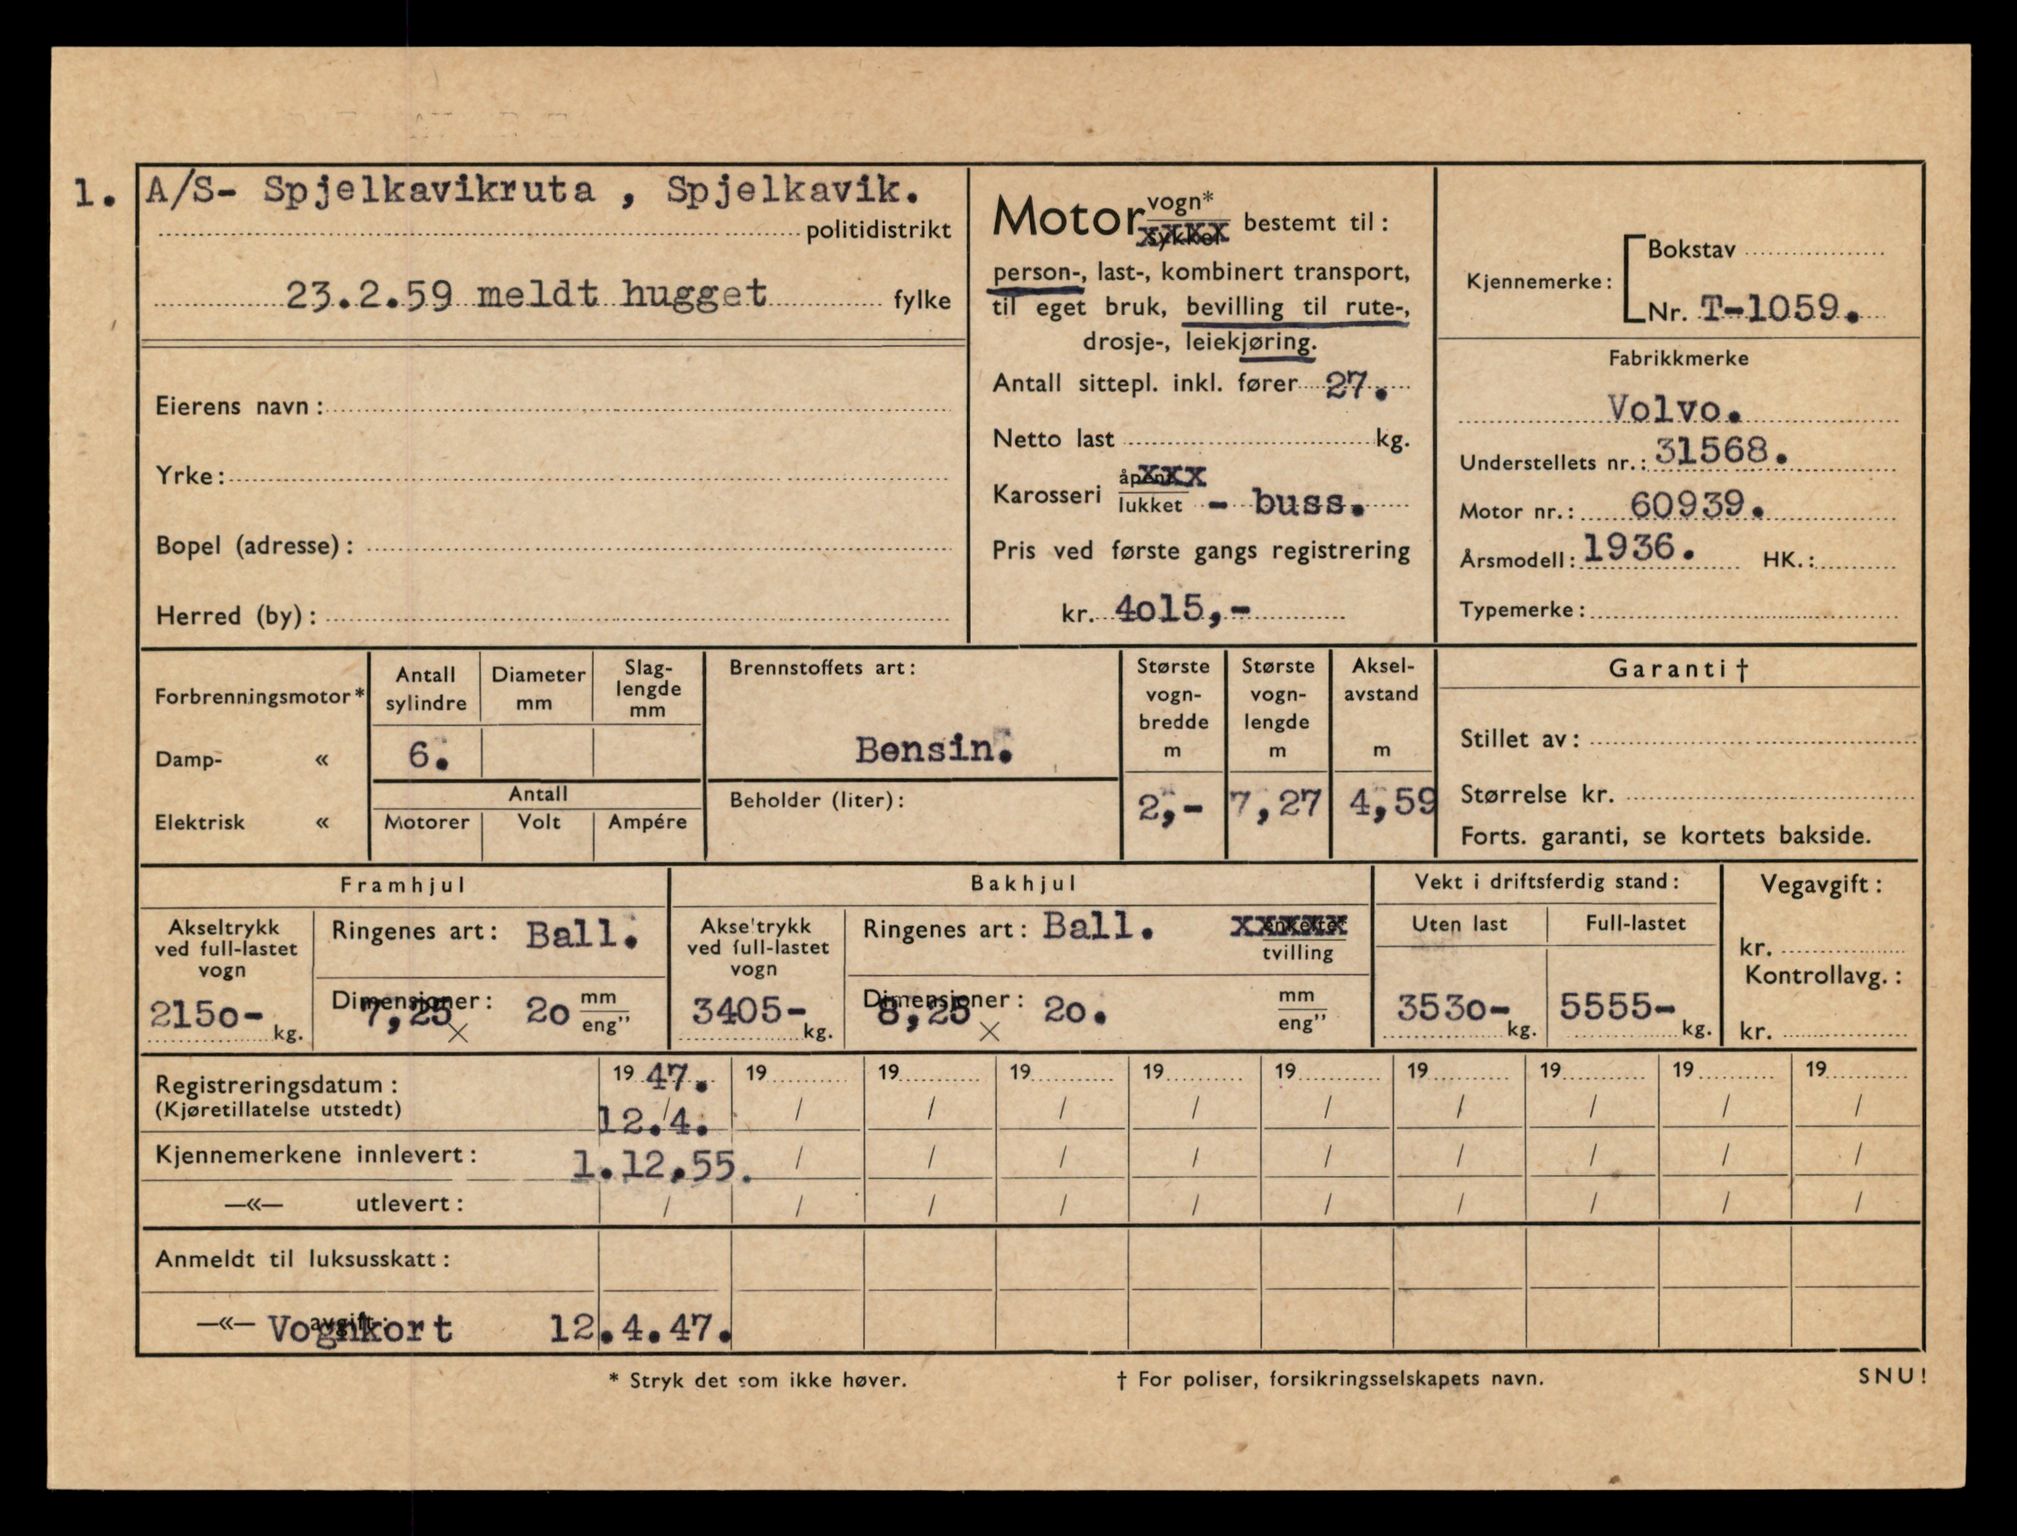 1. A/S- Spjelkavikruta , Spjelkavik.
politidistrikt
23.2.59 meldt hugget fylke
Eierens navn:
Yrke:
Bopel (adresse):
Herred (by):
Motor vogn* bestemt til:
sykkel
person-, last-, kombinert transport,
til eget bruk, bevilling til rute-,
drosje-, leiekjøring.
Antall sittepl. inkl. fører 27.
Netto last kg.
Karosseri åpent
lukket - buss.
Pris ved første gangs registrering
kr. 4o15,-
Kjennemerke: Bokstav
Nr. T-1059.
Fabrikkmerke
Volvo.
Understellets nr.: 31568.
Motor nr.: 60939.
Årsmodell: 1936. HK.:
Typemerke:
Forbrenningsmotor*
Damp- «
Elektrisk «
Antall sylindre
6.
Diameter mm
Slag-
lengde
mm
Antall
Motorer Volt Ampére
Brennstoffets art:
Bensin.
Beholder (liter):
Største
vogn-
bredde
m
2,-
Største
vogn-
lengde
m
7,27
Aksel-
avstand
m
4,59
Garanti †
Stillet av:
Størrelse kr.
Forts. garanti, se kortets bakside.
Framhjul
Akseltrykk
ved full-lastet
vogn
215o- kg.
Ringenes art: Ball.
Dimensjoner: 7,25 × 2o mm
eng”
Bakhjul
Akseltrykk
ved full-lastet
vogn
3405- kg.
Ringenes art: Ball. enkelte*
tvilling
Dimensjoner: 8,25 × 2o. mm
eng”
Vekt i driftsferdig stand:
Uten last Full-lastet
353o- kg. 5555- kg.
Vegavgift:
kr.
Kontrollavg.:
kr.
Registreringsdatum: 19 47. 19 19 19 19 19 19 19 19 19
(Kjøretillatelse utstedt) 12./4. / / / / / / / / /
Kjennemerkene innlevert: 1.12.55. / / / / / / / / /
—«— utlevert: / / / / / / / / / /
Anmeldt til luksusskatt:
—«— avgift: Vognkort 12.4.47.
* Stryk det som ikke høver. † For poliser, forsikringsselskapets navn. SNU!